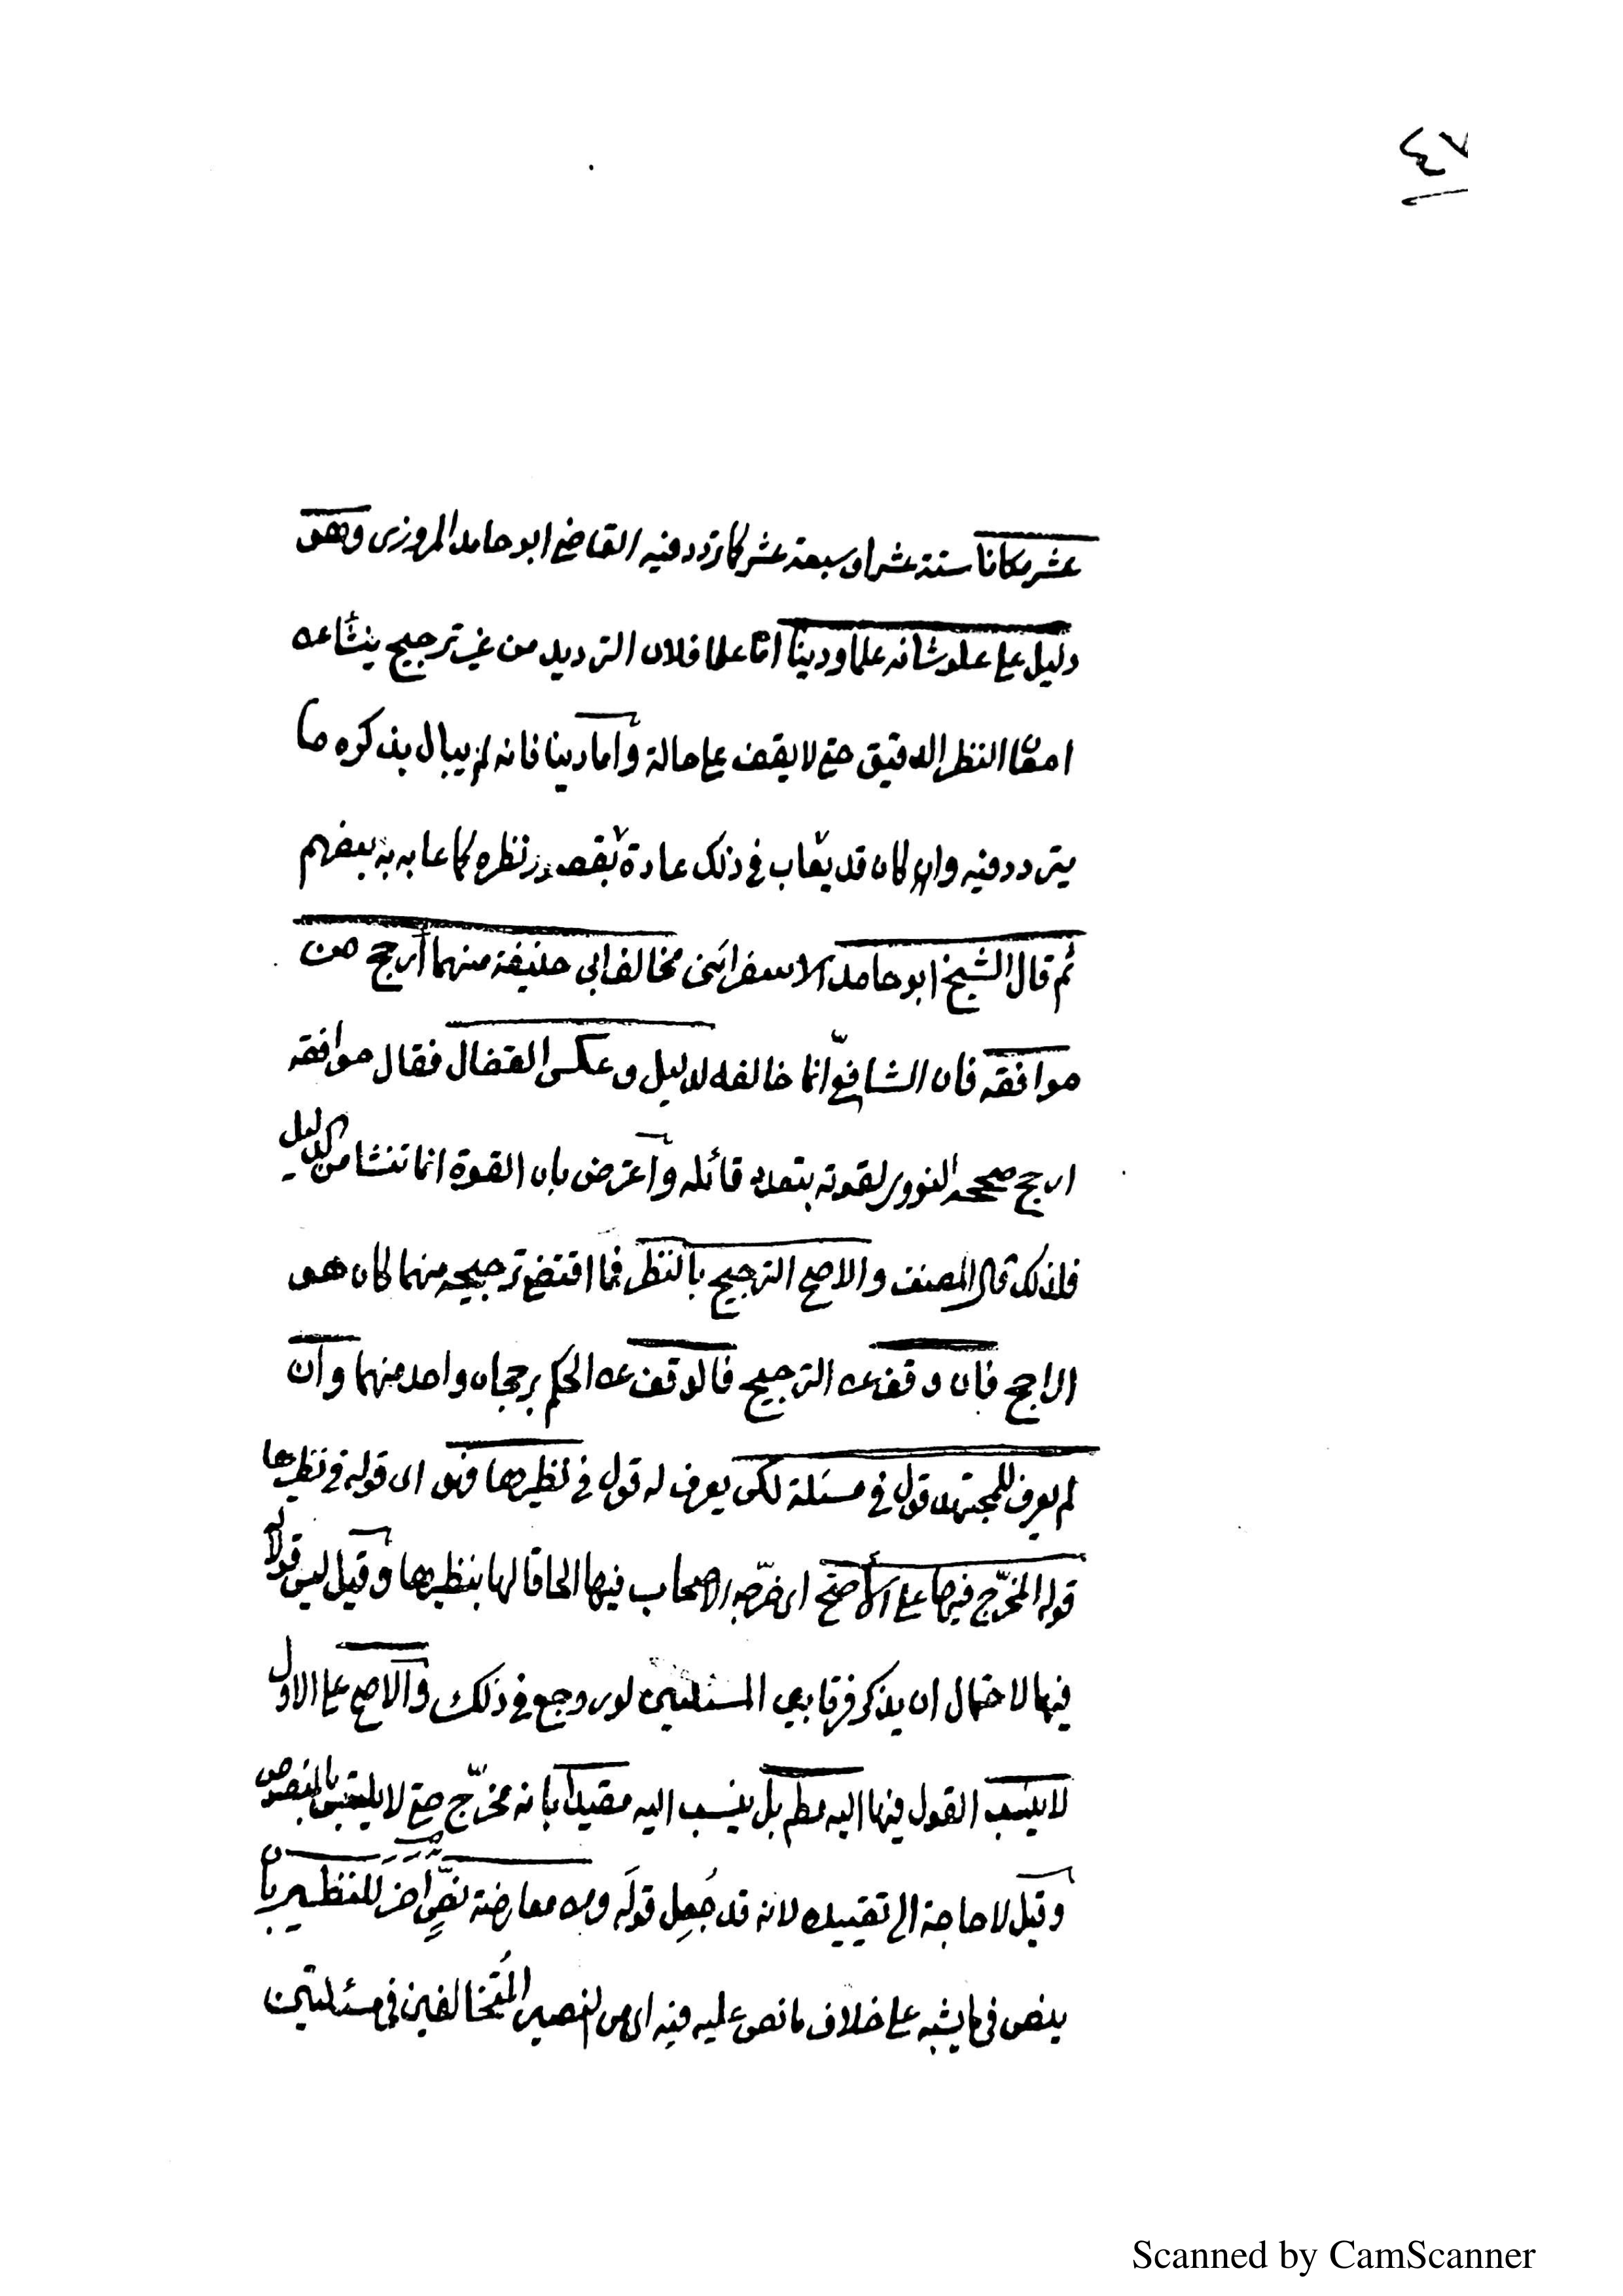 ٤٧
عشر مكانا ستة عشر او سبعة عشر كما تردد فيه القاضي ابو حامد المروزى وهو
دليل على علو شانه علما ودينا اما علما فلان الترديد من غير ترجيح ينشأ عن
امعان النظر الدقيق حتى لا يقف على حالة وأما دينا فانه لم يبال بذكره ما
يتردد فيه وان كان قد يعاب في ذلك عادة بقصور نظره كما عابه به بعضهم
ثم قال الشيخ ابو حامد الاسفرائنى مخالف ابى حنيفة منهما أرجح من
موافقه فان الشافعىّ انما خالفه لدليل وعكس القفال فقال موافقه
ارجح صححه النووى لقوته بتعدد قائله وأعترض بان القوة انما تنشا من الدليل
فلذلك قال المصنف والاصح الترجيح بالنظر فما اقتضى ترجيحه منهما كان هو
الراجح فان وقف عن الترجيح فالوقف عن الحكم برجحان واحد منهما وان
لم يعرف للمجتهد قول في مسئلة لكن يعرف له قول في نظيرها فهو اى قوله في نظيرها
قوله المخرّج فيها على الأصحّ اى خرّجه الاصحاب فيها الحاقا لها بنظيرها وقيل ليس قولا له
فيها لاحتمال ان يذكر فرقا بين المسئلتين لو روجع في ذلك والاصح على الاول
لا ينسب القول فيها اليه مطم بل ينسب اليه مقيدا بانه مخرّج حتى لا يلتبس بالمنصوص
وقيل لا حاجة الى تقييده لانه قد جُعِل قولَه ومن معارضة نصٍّ اخر للنظير بان
ينص فى ما يشبه على خلاف ما نص عليه فيه اى من النصين المُتخالفين في مسئلتين
Scanned by CamScanner